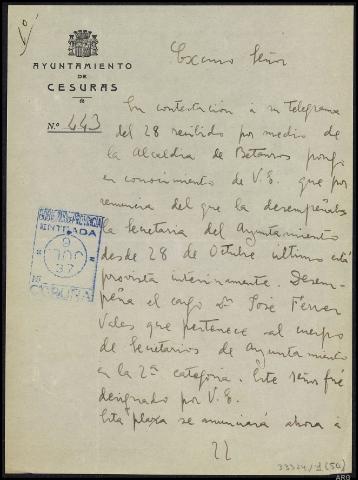 AYUNTAMIENTO
DE
CESURAS
N.º 443
Excmo Señor
En contestación a su telegrama
del 28 recibido por medio de
la Alcaldia de Betanzos pongo
en conocimiento de V.E. que por
renuncia del que la desempeñaba
la Secretaria del Ayuntamiento
desde 28 de Octubre último está
provista interinamente. Desem-
peña el cargo Dn José Ferrer
Vales que pertenece al cuerpo
de Secretarios de Ayuntamiento
en la 2ª categoria. Este Señor fué
designado por V.E.
Esta plaza se anunciará ahora a
ENTRADA
9
37
CORUÑA
33324/1 (54)
ARG